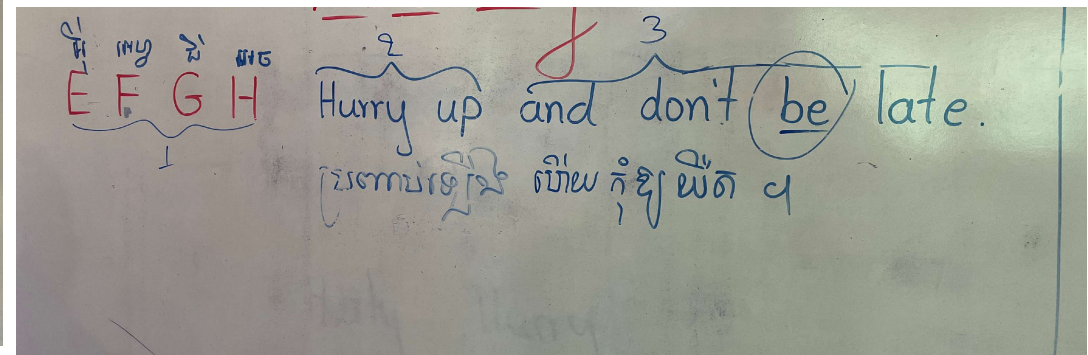 2 3
អ៊ី អេហ្វ ជី អេច
E F G H Hurry up and don't be late.
1
ប្រញាប់ឡើង ហើយ កុំឱ្យ យឺត ។